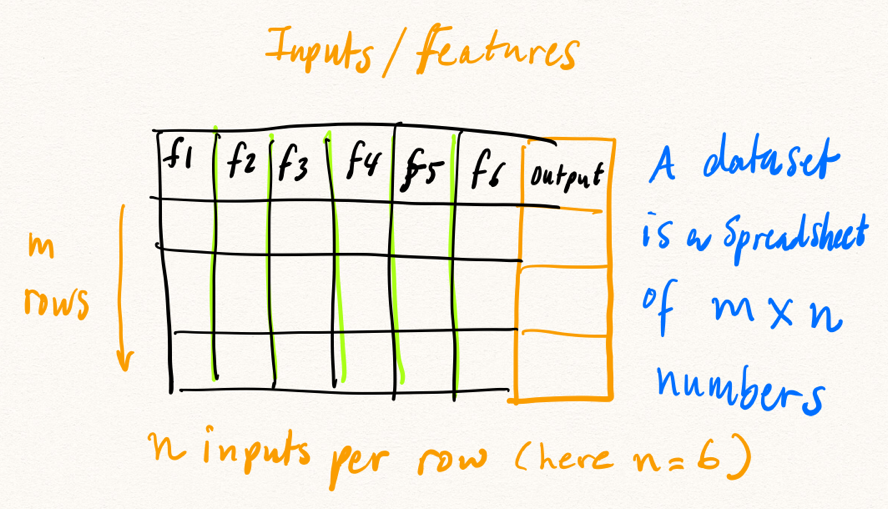 Inputs / features
f1 f2 f3 f4 f5 f6 output
m
rows
A dataset
is a Spreadsheet
of m x n
numbers
n inputs per row (here n = 6)